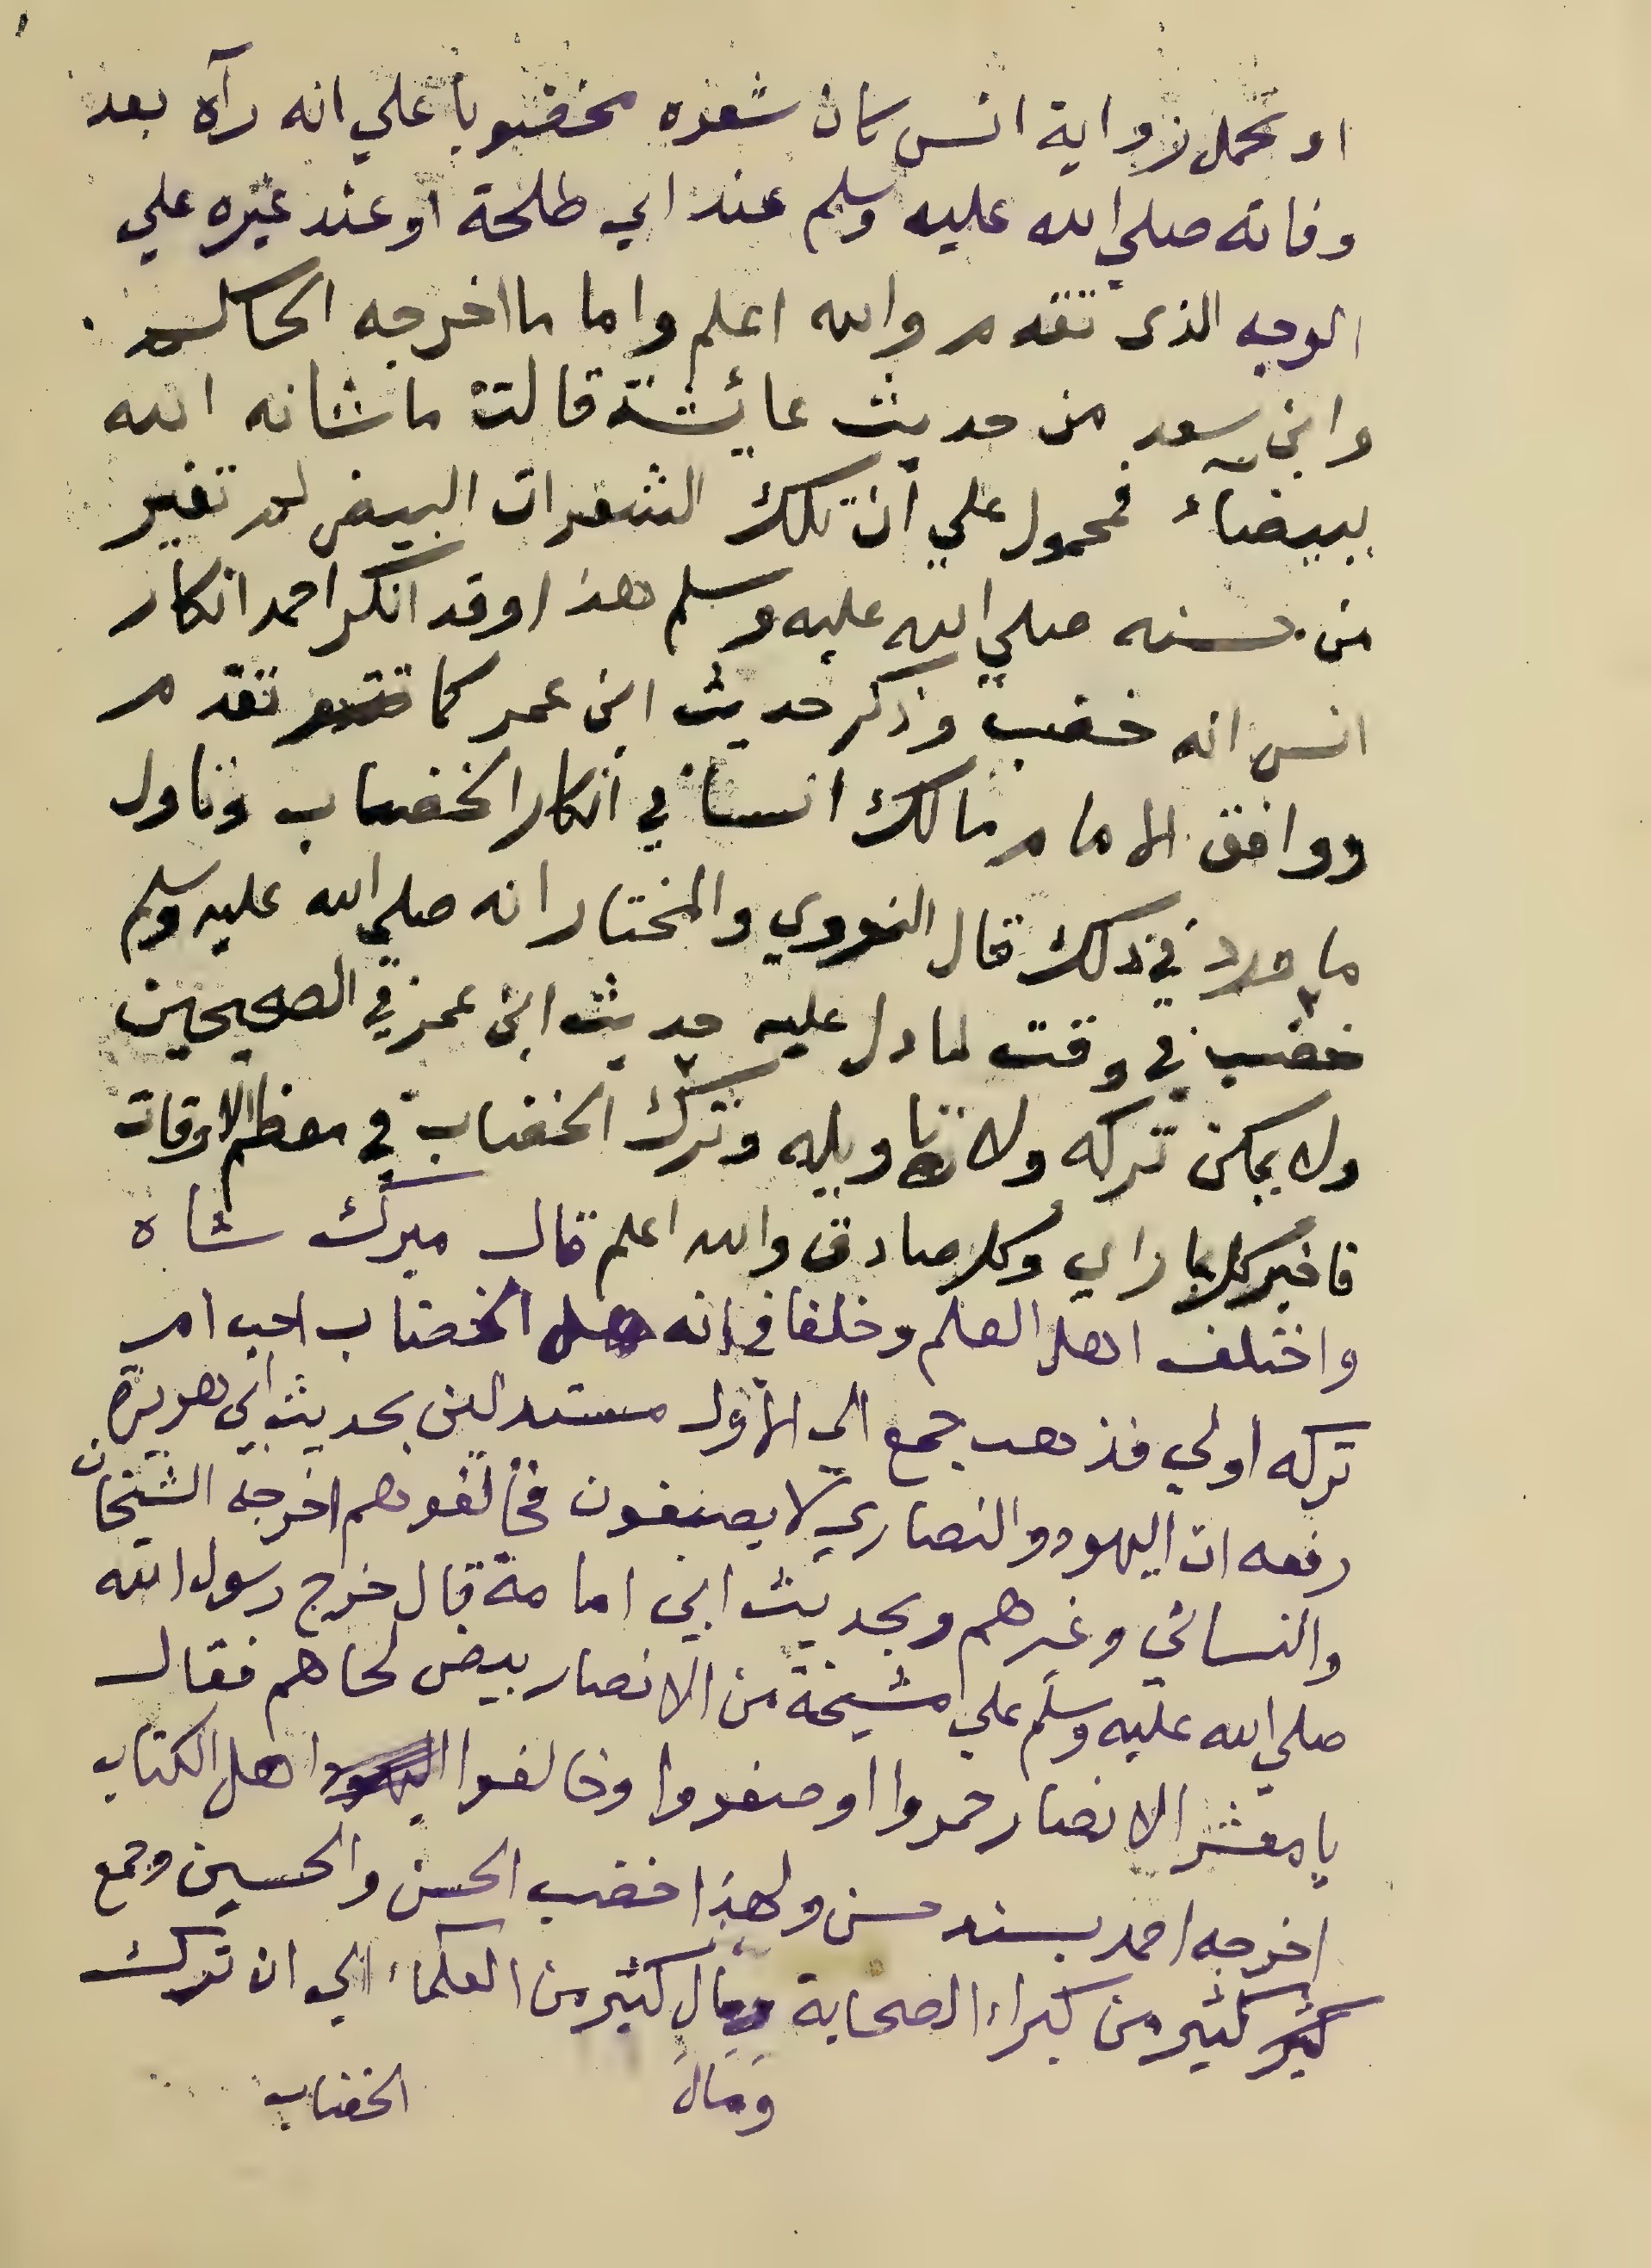 او تحمل رواية انس كان شعره مخضوبا علي انه رآه بعد
وفاته صلي الله عليه وسلم عند ابي طلحة او عند غيره علي
الوجه الذى تقدم والله اعلم واما ما اخرجه الحاكم
وابن سعد من حديث عائشة قالت ما شانه الله
ببيضآء فمحمول علي ان تلك الشعرات البيض لم تغير
من حسنه صلي الله عليه وسلم هذا وقد انكر احمد انكار
انس انه خضب وذكر حديث ابن عمر كما تقدم
ووافق الامام مالك انسا في انكار الخضاب وتاول
ما ورد في ذلك قال النووي والمختار انه صلي الله عليه وسلم
خضب في وقت لما دل عليه حديث ابن عمر في الصحيحين
ولا يمكن تركه ولا تاويله وترك الخضاب في معظم الاوقات
فاخبر كل بما راي وكل صادق والله اعلم قال ميرك شاه
واختلف اهل العلم وخلفا في انه هل الخضاب احب ام
تركه اولي فذهب جمع الي الاول مستدلين بحديث ابي هريرة
رفعه ان اليهود والنصاري لا يصبغون فخالفوهم اخرجه الشيخان
والنسائي وغيرهم وبحديث ابي امامة قال خرج رسول الله
صلي الله عليه وسلم علي مشيخة من الانصار بيض لحاهم فقال
يا معشر الانصار حمروا او صفروا وخالفوا اهل الكتاب
اخرجه احمد بسند حسن ولهذا خضب الحسن والحسين وجمع
كثير من كبراء الصحابة ومال كثير من العلماء الي ان ترك
وَمَالَ
الخضاب